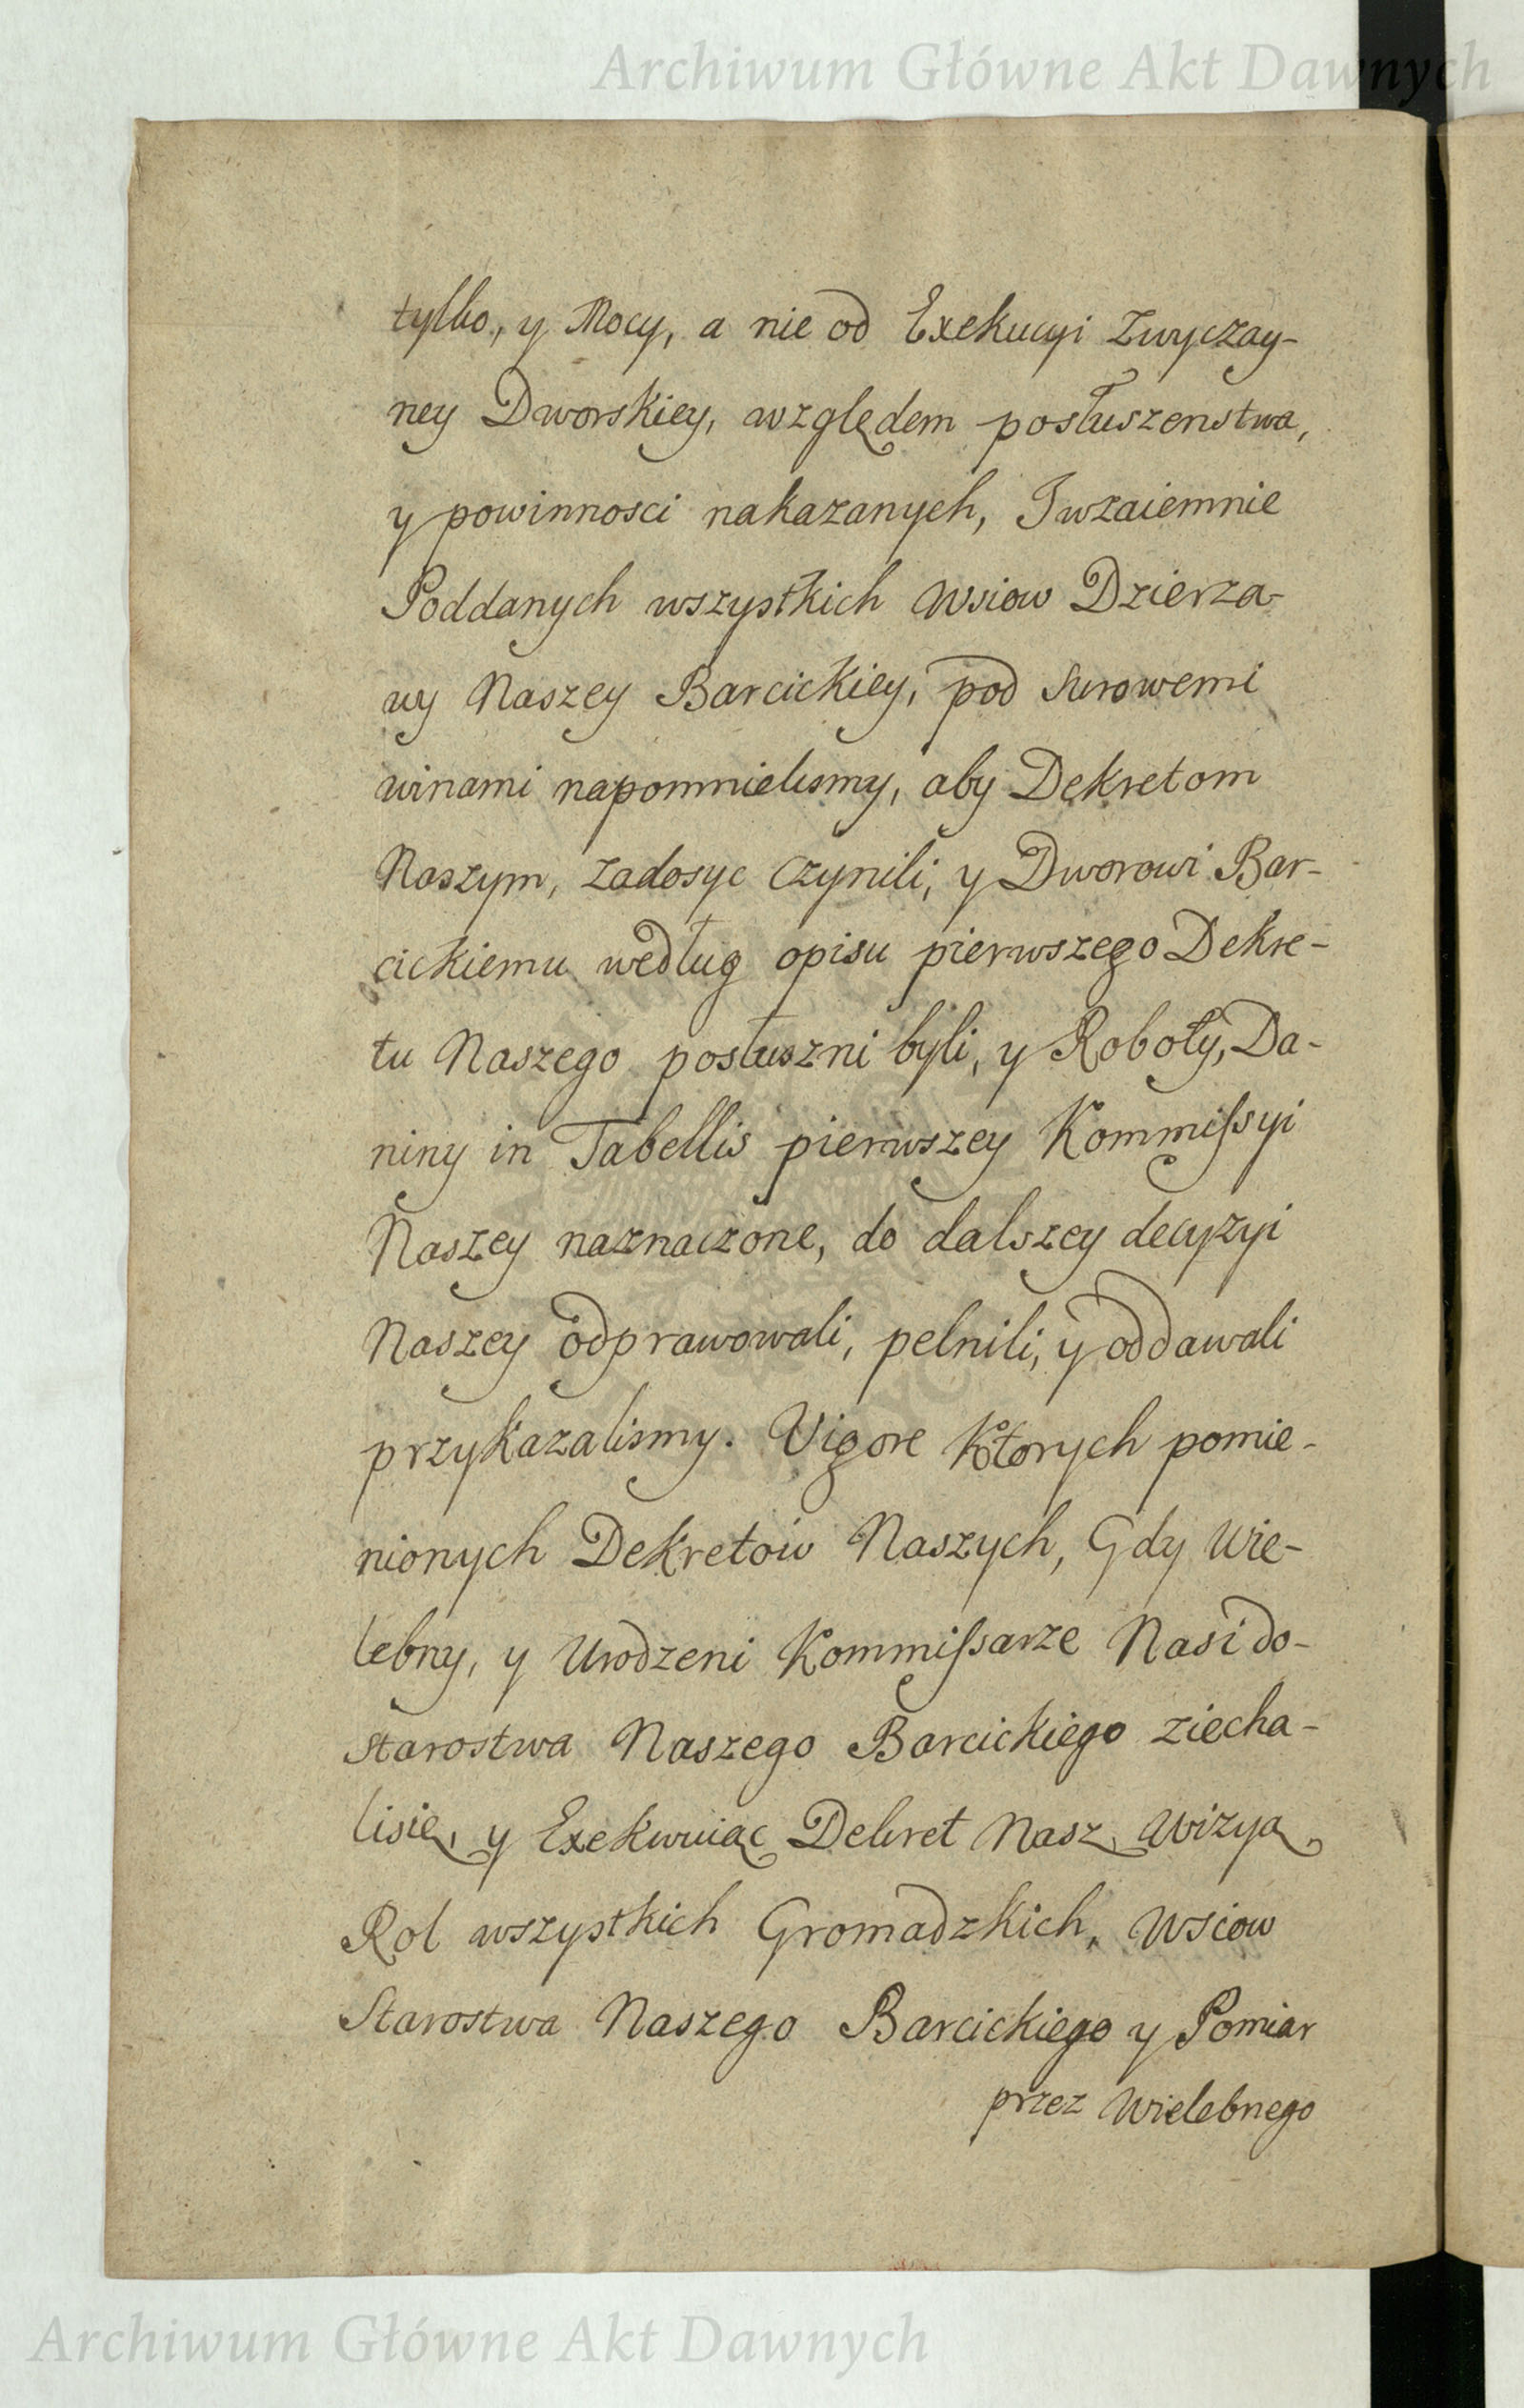 Archiwum Główne Akt Dawnych
tylko, y Mocy, a nie od Exekucyi Zwyczay-
ney Dworskiey, względem posłuszenstwa,
y powinnosci nakazanych, I wzaiemnie
Poddanych wszystkich Wsiow Dzierza-
wy Naszey Barcickiey, pod Surowemi
winami napomnielismy, aby Dekretom
Naszym, zadosyc czynili, y Dworowi Bar-
cickiemu według opisu pierwszego Dekre-
tu Naszego posłuszni byli, y Roboty, Da-
niny in Tabellis pierwszey Kommissyi
Naszey naznaczone, do dalszey decyzyi
Naszey odprawowali, pelnili, y oddawali
przykazalismy. Vigore Ktorych pomie-
nionych Dekretow Naszych, Gdy Wie-
lebny, y Urodzeni Kommissarze Nasi do-
Starostwa Naszego Barcickiego ziecha-
lisię, y Exekwuiąc Dekret Nasz, Wizyą,
Rol wszystkich Gromadzkich, Wsiow
Starostwa Naszego Barcickiego y Pomiar
przez Wielebnego
Archiwum Główne Akt Dawnych